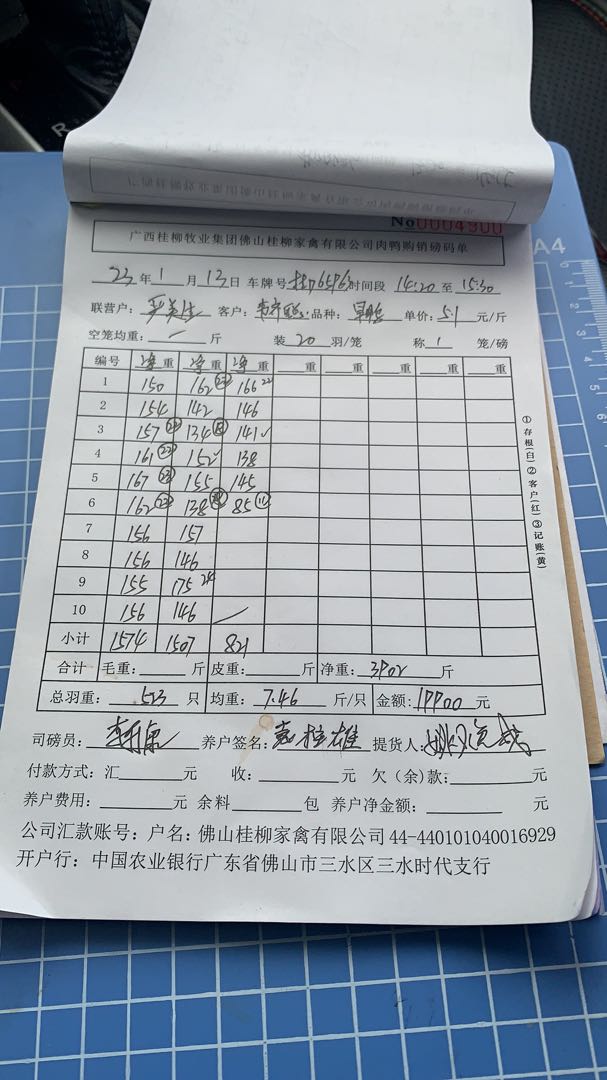 No0004900
广西桂柳牧业集团佛山桂柳家禽有限公司肉鸭购销磅码单
23年1月13日 车牌号 时间段 14:20至15:30
联营户: 客户: 品种: 单价:5.1元/斤
空笼均重:/斤 装20羽/笼 称1笼/磅
编号 净重 净重 净重 重 重 重 重 重
1 150 162 (23) 166 22
2 154 142 146
3 157 (22) 134 (18) 141 ✓
4 161 (22) 152 ✓ 138
5 167 (23) 155 145
6 162 (22) 138 85 (11)
7 156 157
8 156 146
9 155 175 24
10 156 146 /
小计 1574 1507 821
合计 毛重:斤 皮重:斤 净重:3902斤
总羽重:523只 均重:7.46斤/只 金额:19900元
司磅员: 养户签名: 提货人:
付款方式:汇元 收:元 欠(余)款:元
养户费用:元 余料包 养户净金额:元
公司汇款账号:户名:佛山桂柳家禽有限公司44-440101040016929
开户行:中国农业银行广东省佛山市三水区三水时代支行
①存根(白)②客户(红)③记账(黄)
A4